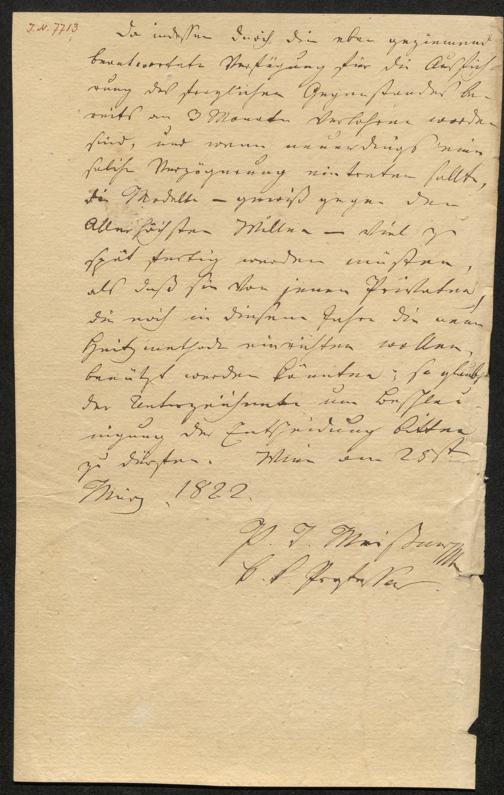 J. N. 7713
Da indessen durch die eben geziemend
beantwortete Verfügung für die Ausfüh-
rung des fraglichen Gegenstandes be-
reits an 3 Monate verlohren worden
sind, und wenn neuerdings eine
solche Verzögerung eintreten sollte,
die Modelle – gewiß gegen den
Allerhöchsten Willen – viel zu
spät fertig werden müßten,
als daß sie von jenen Privaten,
die noch in diesem Jahre die neue
Heitzmethode einrichten wollen,
benützt werden könnten; so glaubt
der Unterzeichnete um Beschleu-
nigung der Entscheidung bitten
zu dürfen. Wien am 25st
März 1822.
P. T. Meißner
k. k. Professor